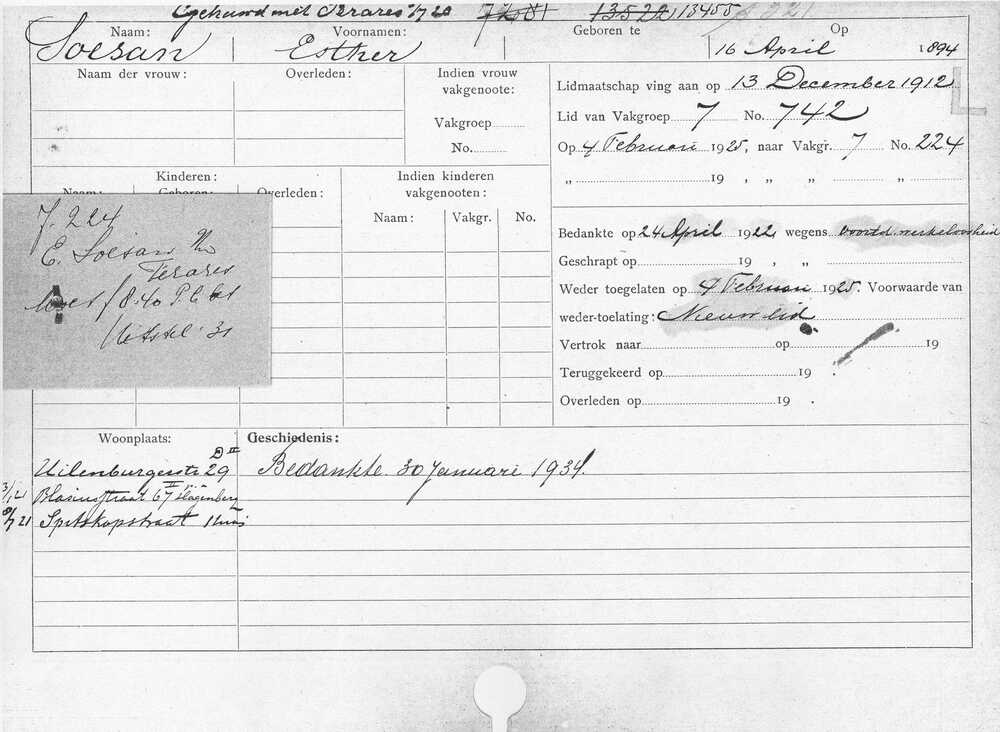 gehuwd met Terares 7/20 7281 13522 13455
Naam: Voornamen: Geboren te Op
Soesan Esther 16 April 1894
Naam der vrouw: Overleden: Indien vrouw vakgenoote:
Vakgroep
No.
Lidmaatschap ving aan op 13 December 1912
Lid van Vakgroep 7 No. 742
Op 4 Februari 1925, naar Vakgr. 7 No. 224
„ 19 , „ „ „
Kinderen: Indien kinderen vakgenooten:
Naam: Geboren: Overleden: Naam: Vakgr. No.
7. 224
E. Soesan
Terares
moet f 8.40 P.C.
Uitstel '31
Bedankte op 24 April 1922, wegens voortd. werkeloosheid
Geschrapt op 19 , „
Weder toegelaten op 4 Februari 1925. Voorwaarde van
weder-toelating: Nieuw lid
Vertrok naar op 19
Teruggekeerd op 19 .
Overleden op 19 .
Woonplaats: Geschiedenis:
Uilenburgerstr 29 D II Bedankte 30 Januari 1934.
3/1 21 Blasiusstraat 67 II Slagenberg
8/7 21 Spitskopstraat 1 huis